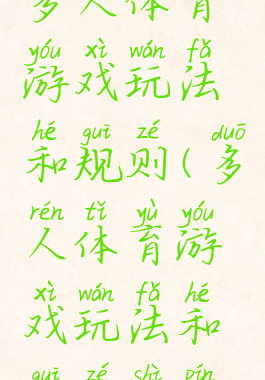 多人体育
yóu xì wán fǎ
游戏玩法
hé guī zé duō
和规则(多
rén tǐ yù yóu
人体育游
xì wán fǎ hé
戏玩法和
guī zé shì pín